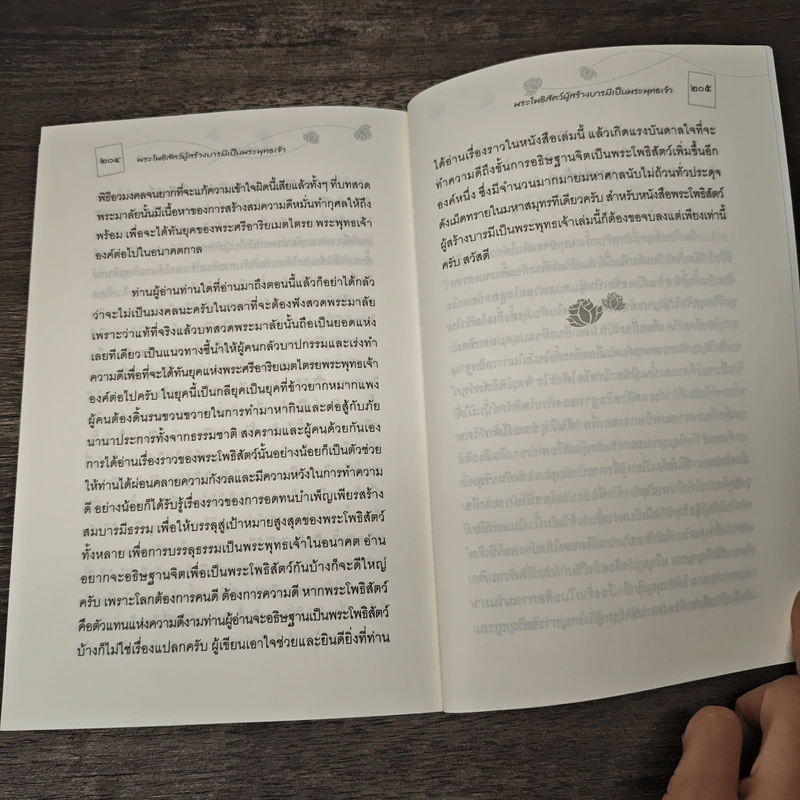 ๒๐๔
พระโพธิสัตว์ผู้สร้างบารมีเป็นพระพุทธเจ้า
พิธีอวมงคลจนยากที่จะแก้ความเข้าใจผิดนี้เสียแล้วทั้งๆ ที่บทสวด
พระมาลัยนั้นมีเนื้อหาของการสร้างสมความดีหมั่นทำกุศลให้ถึง
พร้อม เพื่อจะได้ทันยุคของพระศรีอาริยเมตไตรย พระพุทธเจ้า
องค์ต่อไปในอนาคตกาล
ท่านผู้อ่านท่านใดที่อ่านมาถึงตอนนี้แล้วก็อย่าได้กลัว
ว่าจะไม่เป็นมงคลนะครับในเวลาที่จะต้องฟังสวดพระมาลัย
เพราะว่าแท้ที่จริงแล้วบทสวดพระมาลัยนั้นถือเป็นยอดแห่ง
เลยทีเดียว เป็นแนวทางชี้นำให้ผู้คนกลัวบาปกรรมและเร่งทำ
ความดีเพื่อที่จะได้ทันยุคแห่งพระศรีอาริยเมตไตรยพระพุทธเจ้า
องค์ต่อไปครับ ในยุคนี้เป็นกลียุคเป็นยุคที่ข้าวยากหมากแพง
ผู้คนต้องดิ้นรนขวนขวายในการทำมาหากินและต่อสู้กับภัย
นานาประการทั้งจากธรรมชาติ สงครามและผู้คนด้วยกันเอง
การได้อ่านเรื่องราวของพระโพธิสัตว์นั้นอย่างน้อยก็เป็นตัวช่วย
ให้ท่านได้ผ่อนคลายความกังวลและมีความหวังในการทำความ
ดี อย่างน้อยก็ได้รับรู้เรื่องราวของการอดทนบำเพ็ญเพียรสร้าง
สมบารมีธรรม เพื่อให้บรรลุสู่เป้าหมายสูงสุดของพระโพธิสัตว์
ทั้งหลาย เพื่อการบรรลุธรรมเป็นพระพุทธเจ้าในอนาคต อ่าน
อยากจะอธิษฐานจิตเพื่อเป็นพระโพธิสัตว์กันบ้างก็จะดีใหญ่
ครับ เพราะโลกต้องการคนดี ต้องการความดี หากพระโพธิสัตว์
คือตัวแทนแห่งความดีงามท่านผู้อ่านจะอธิษฐานเป็นพระโพธิสัตว์
บ้างก็ไม่ใช่เรื่องแปลกครับ ผู้เขียนเอาใจช่วยและยินดียิ่งที่ท่าน
พระโพธิสัตว์ผู้สร้างบารมีเป็นพระพุทธเจ้า
๒๐๕
ได้อ่านเรื่องราวในหนังสือเล่มนี้ แล้วเกิดแรงบันดาลใจที่จะ
ทำความดีถึงขั้นการอธิษฐานจิตเป็นพระโพธิสัตว์เพิ่มขึ้นอีก
องค์หนึ่ง ซึ่งมีจำนวนมากมายมหาศาลนับไม่ถ้วนทั่วประดุจ
ดังเม็ดทรายในมหาสมุทรทีเดียวครับ สำหรับหนังสือพระโพธิสัตว์
ผู้สร้างบารมีเป็นพระพุทธเจ้าเล่มนี้ก็ต้องขอจบลงแต่เพียงเท่านี้
ครับ สวัสดี